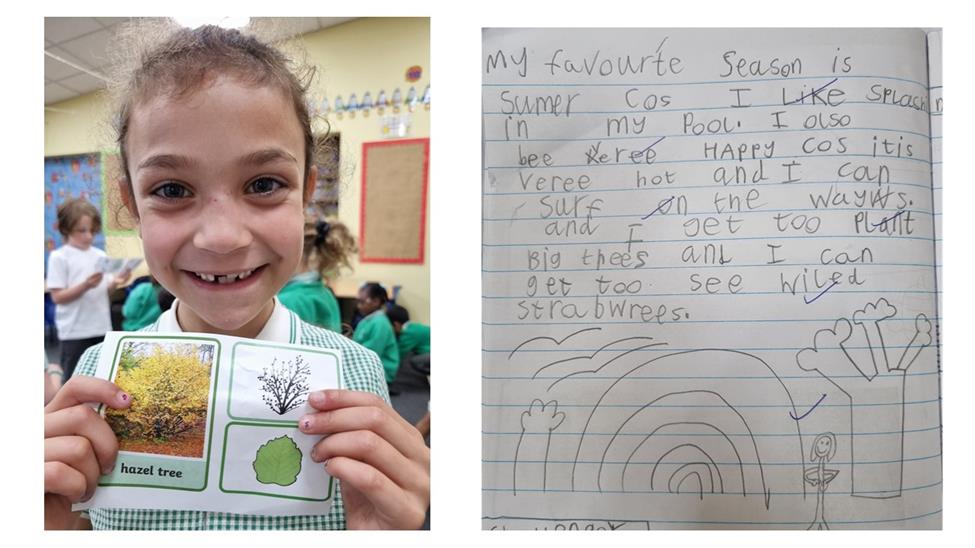 hazel tree
My favourte Season is
Sumer cos I Like Splash
in my Pool. I also
bee veree HAPPy cos itis
veree hot and I can
Surf on the wayws.
and I get too Plant
Big thees and I can
get too see wiled
strabwrees.